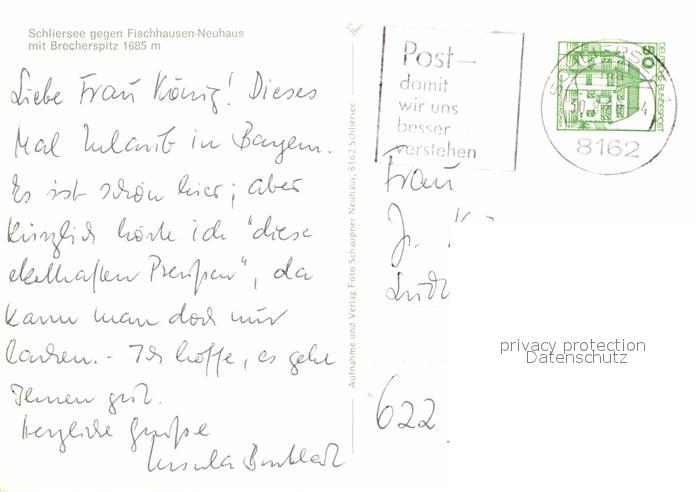 Schliersee gegen Fischhausen-Neuhaus
mit Brecherspitz 1685 m
Liebe Frau König! Dieses
Mal Urlaub in Bayern.
Es ist schön hier; aber
kürzlich hörte ich "diese
ekelhaften Preußen", da
kann man doch nur
lachen. - Ich hoffe, es geht
Ihnen gut.
Herzliche Grüße
Ursula
Aufnahme und Verlag Foto Schaupner Neuhaus, 8162 Schliersee
Post-
damit
wir uns
besser
verstehen
SCHLIERSEE 1
30.
8162
50
DEUTSCHE BUNDESPOST
Frau
622
privacy protection
Datenschutz